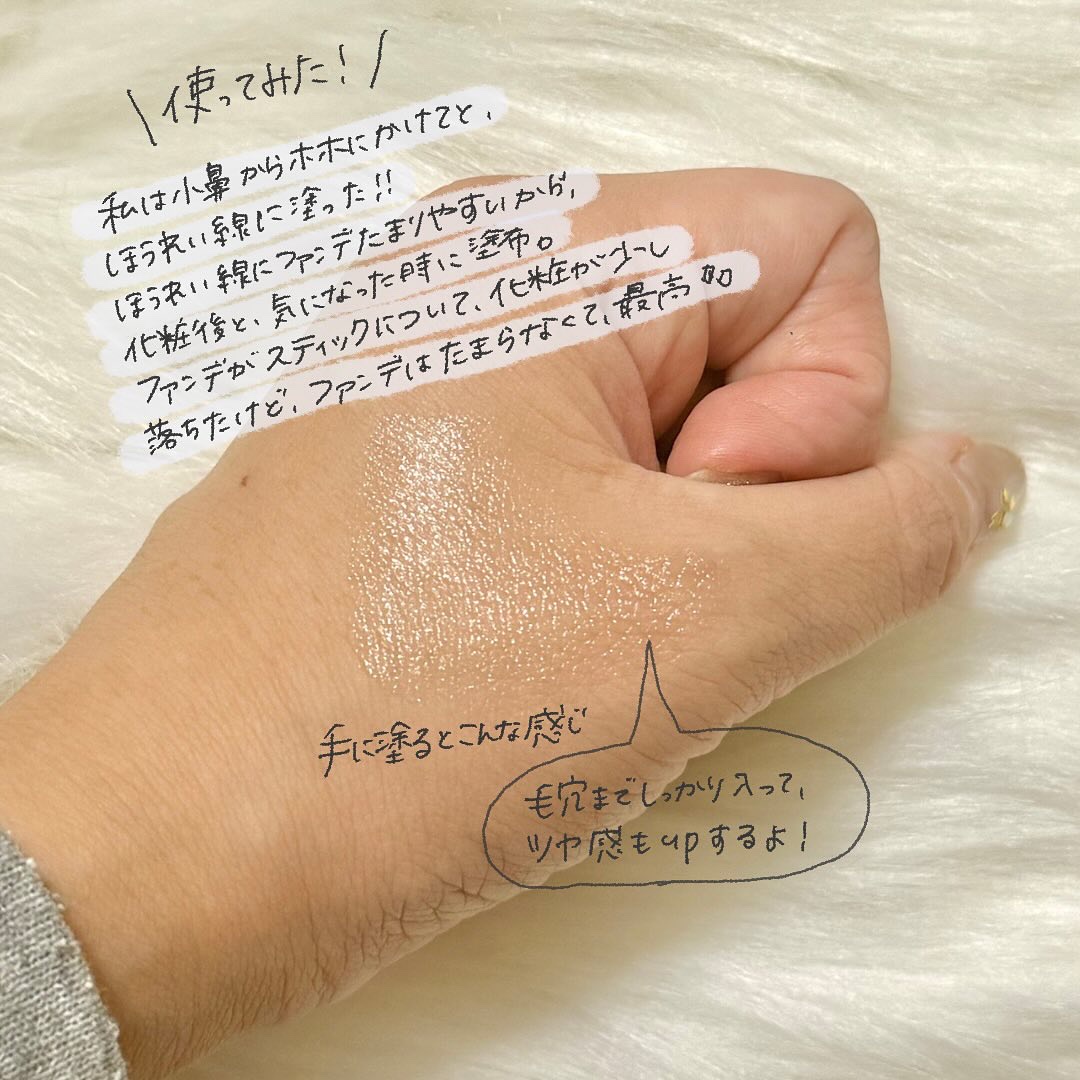 \使ってみた!/
私は小鼻からホホにかけてと、
ほうれい線に塗った!!
ほうれい線にファンデたまりやすいから、
化粧後と、気になった時に塗布。
ファンデがスティックについて、化粧が少し
落ちたけど、ファンデはたまらなくて、最高。
手に塗るとこんな感じ
毛穴までしっかり入って、
ツヤ感もupするよ!